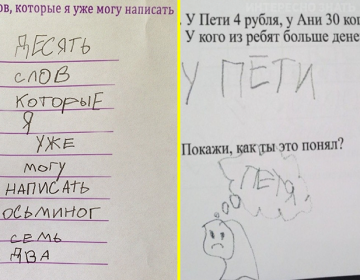 ов, которые я уже могу написать
ДЕСЯТЬ
СЛОВ
КОТОРЫЕ
Я
УЖЕ
МОГУ
НАПИСАТЬ
ОСЬМИНОГ
СЕМЬ
ДВА
У Пети 4 рубля, у Ани 30 коп
У кого из ребят больше дене
У ПЕТИ
Покажи, как ты это понял?
ПЕТЯ